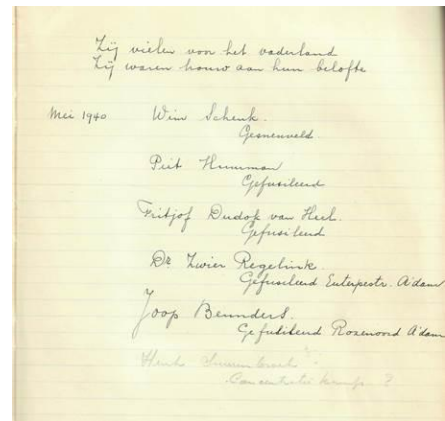 Zij vielen voor het vaderland
Zij waren trouw aan hun belofte
Mei 1940 Wim Schenk.
Gesneuveld.
Piet
Gefusileerd
Fritjof Dudok van Heel.
Gefusileerd
Dr Zwier Regelink.
Gefusileerd Euterpestr. A'dam
Joop Beunders.
Gefusileerd Rozenoord A'dam
Henk ?
Concentratie kamp ?